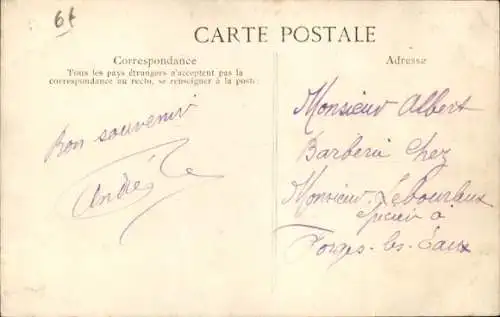 6f
CARTE POSTALE
Correspondance
Tous les pays étrangers n'acceptent pas la
correspondance au recto, se renseigner à la poste
Bon souvenir
André
Adresse
Monsieur Albert
Barberi chez
Monsieur
Epicier à
Forges-les-Eaux